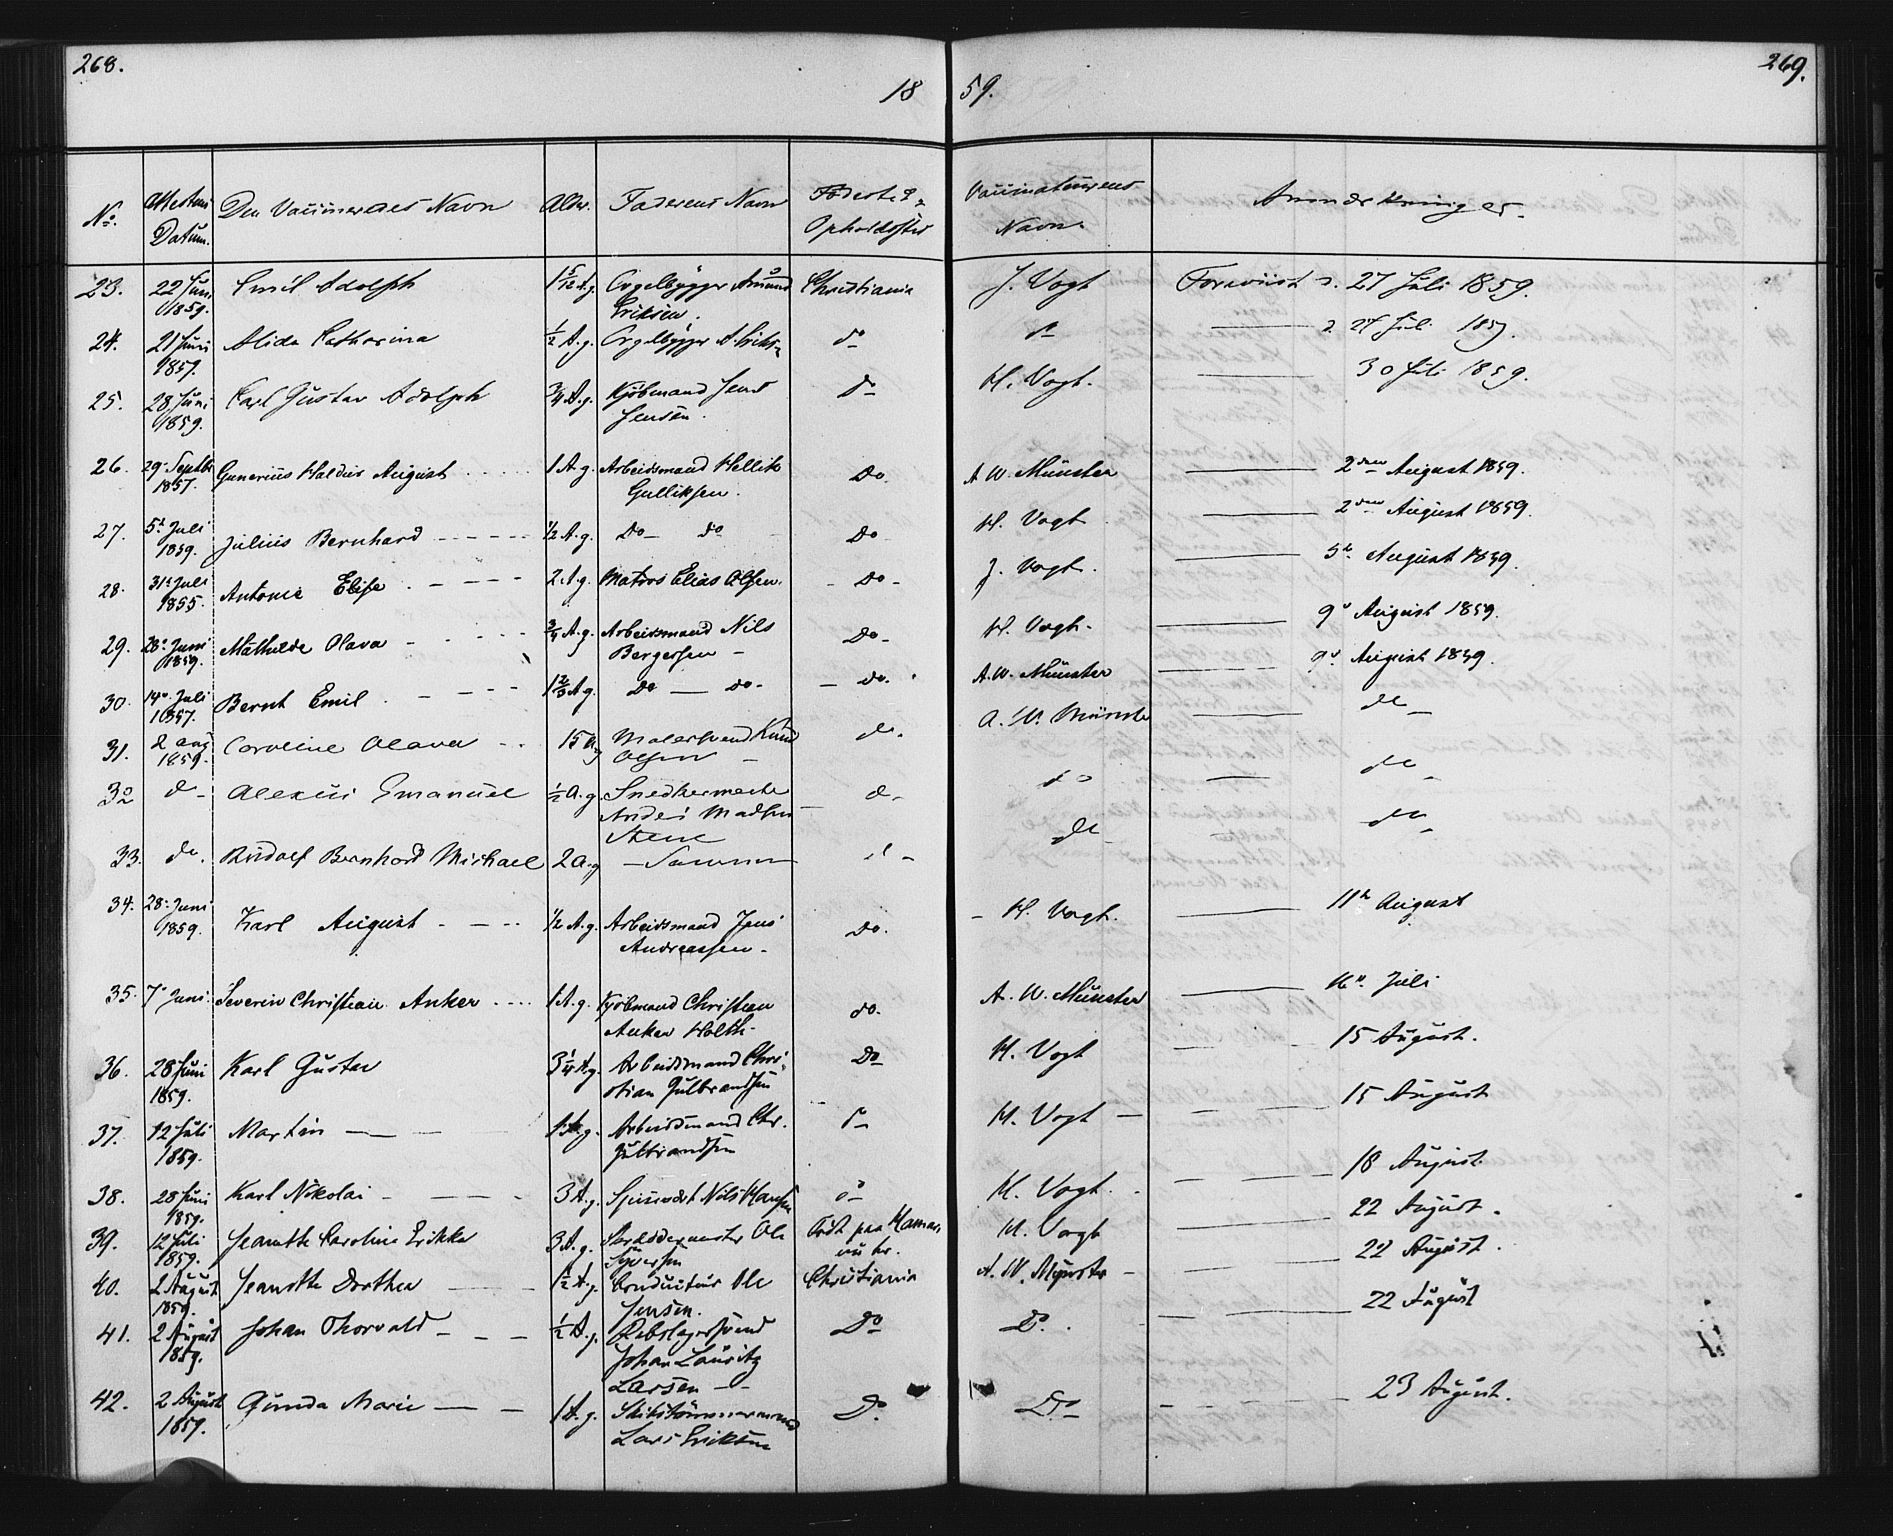 268.
269.
18 59.
No. Attestens Datum. Den Vaccineredes Navn Alder. Faderens Navn Fødested & Opholdssted Vaccinateurens Navn. Anmærkninger.
23. 22 Juni 1859. Emil Adolph 1 5/12 A.g. Orgelbygger Amund Eriksen. Christiania J. Vogt Foreviist d. 27 Juli 1859.
24. 21 Juni 1857. Alida Catharina 1/2 A.g. Orgelbygger A. Eriks: do do — 27 Jul. 1859.
25. 28 Juni 1859. Carl Gustav Adolph 3/4 A.g. Kjøbmand Jens Jensen. do H. Vogt. — 30 Juli 1859.
26. 29. Septbr 1857. Gunerius Haldus August 1 A.g. Arbeidsmand Hellik Gulliksen. Do. A. W. Münster — 2den August 1859.
27. 5t Juli 1859. Julius Bernhard 1/2 A.g. Do — do Do H. Vogt — 2den August 1859.
28. 31t Juli 1855. Antonie Elise 2 A.g. Matros Elias Olsen. Do - J. Vogt. — 5t August 1859.
29. 28. Juni 1859. Mathilde Olava 3/4 A.g. Arbeidsmand Nils Bergersen — Do- H. Vogt. — 9d August 1859.
30. 14. Juli 1857. Bernt Emil 1 2/3 A.g. Do — Do - do. A. W. Münster — 9d August 1859.
31. 2 Aug 1859. Caroline Olava 15 A.g. Malersvend Knud Olsen do. A. W. Münster — do
32 do Alexius Emanuel 1/2 A.g. Snedkermester Andr: Madsen Stene do do — do
33. do. Rudolf Bernhard Michael 2 A.g — Samme — do do — do
34. 28. Juni 1859. Karl August 1/2 A.g. Arbeidsmand Jens Andreassen. Do. H. Vogt. — 11t August
35. 7. Juni. Severin Christian Anker 1 A.g. Kjøbmand Christian Anker Holth. do. A. W. Münster — 16. Juli
36. 28 Juni 1859. Karl Gustav 3 1/4 A.g. Arbeidsmand Christian Gulbrandsen Do H. Vogt — 15 August.
37. 12 Juli 1859. Martin — 1 A.g. Arbeidsmand Chr. Gulbrandsen do H. Vogt — 15 August
38. 28 Juni 1859. Karl Nikolai 3 A.g. Nils Hansen do H. Vogt. — 18 August.
39. 12 Juli 1859. Jeanette Caroline Erikka 3 A.g. Skræddermester Ole Syversen Født paa Hamar, nu her. H. Vogt — 22 August.
40. 2 August 1859. Jeanette Dorthea 1/2 A.g. Conducteur Ole Jensen. Christiania A. W. Münster — 22 August.
41. 2 August 1859. Johan Thorvald 1/2 A.g. Rebslagersvend Johan Lauritz Larsen — Do Do. — 22 August
42. 2 August 1859. Gunda Marie 1 A.g. Skibstømmermand Lars Eriksen Do. Do — 23 August.